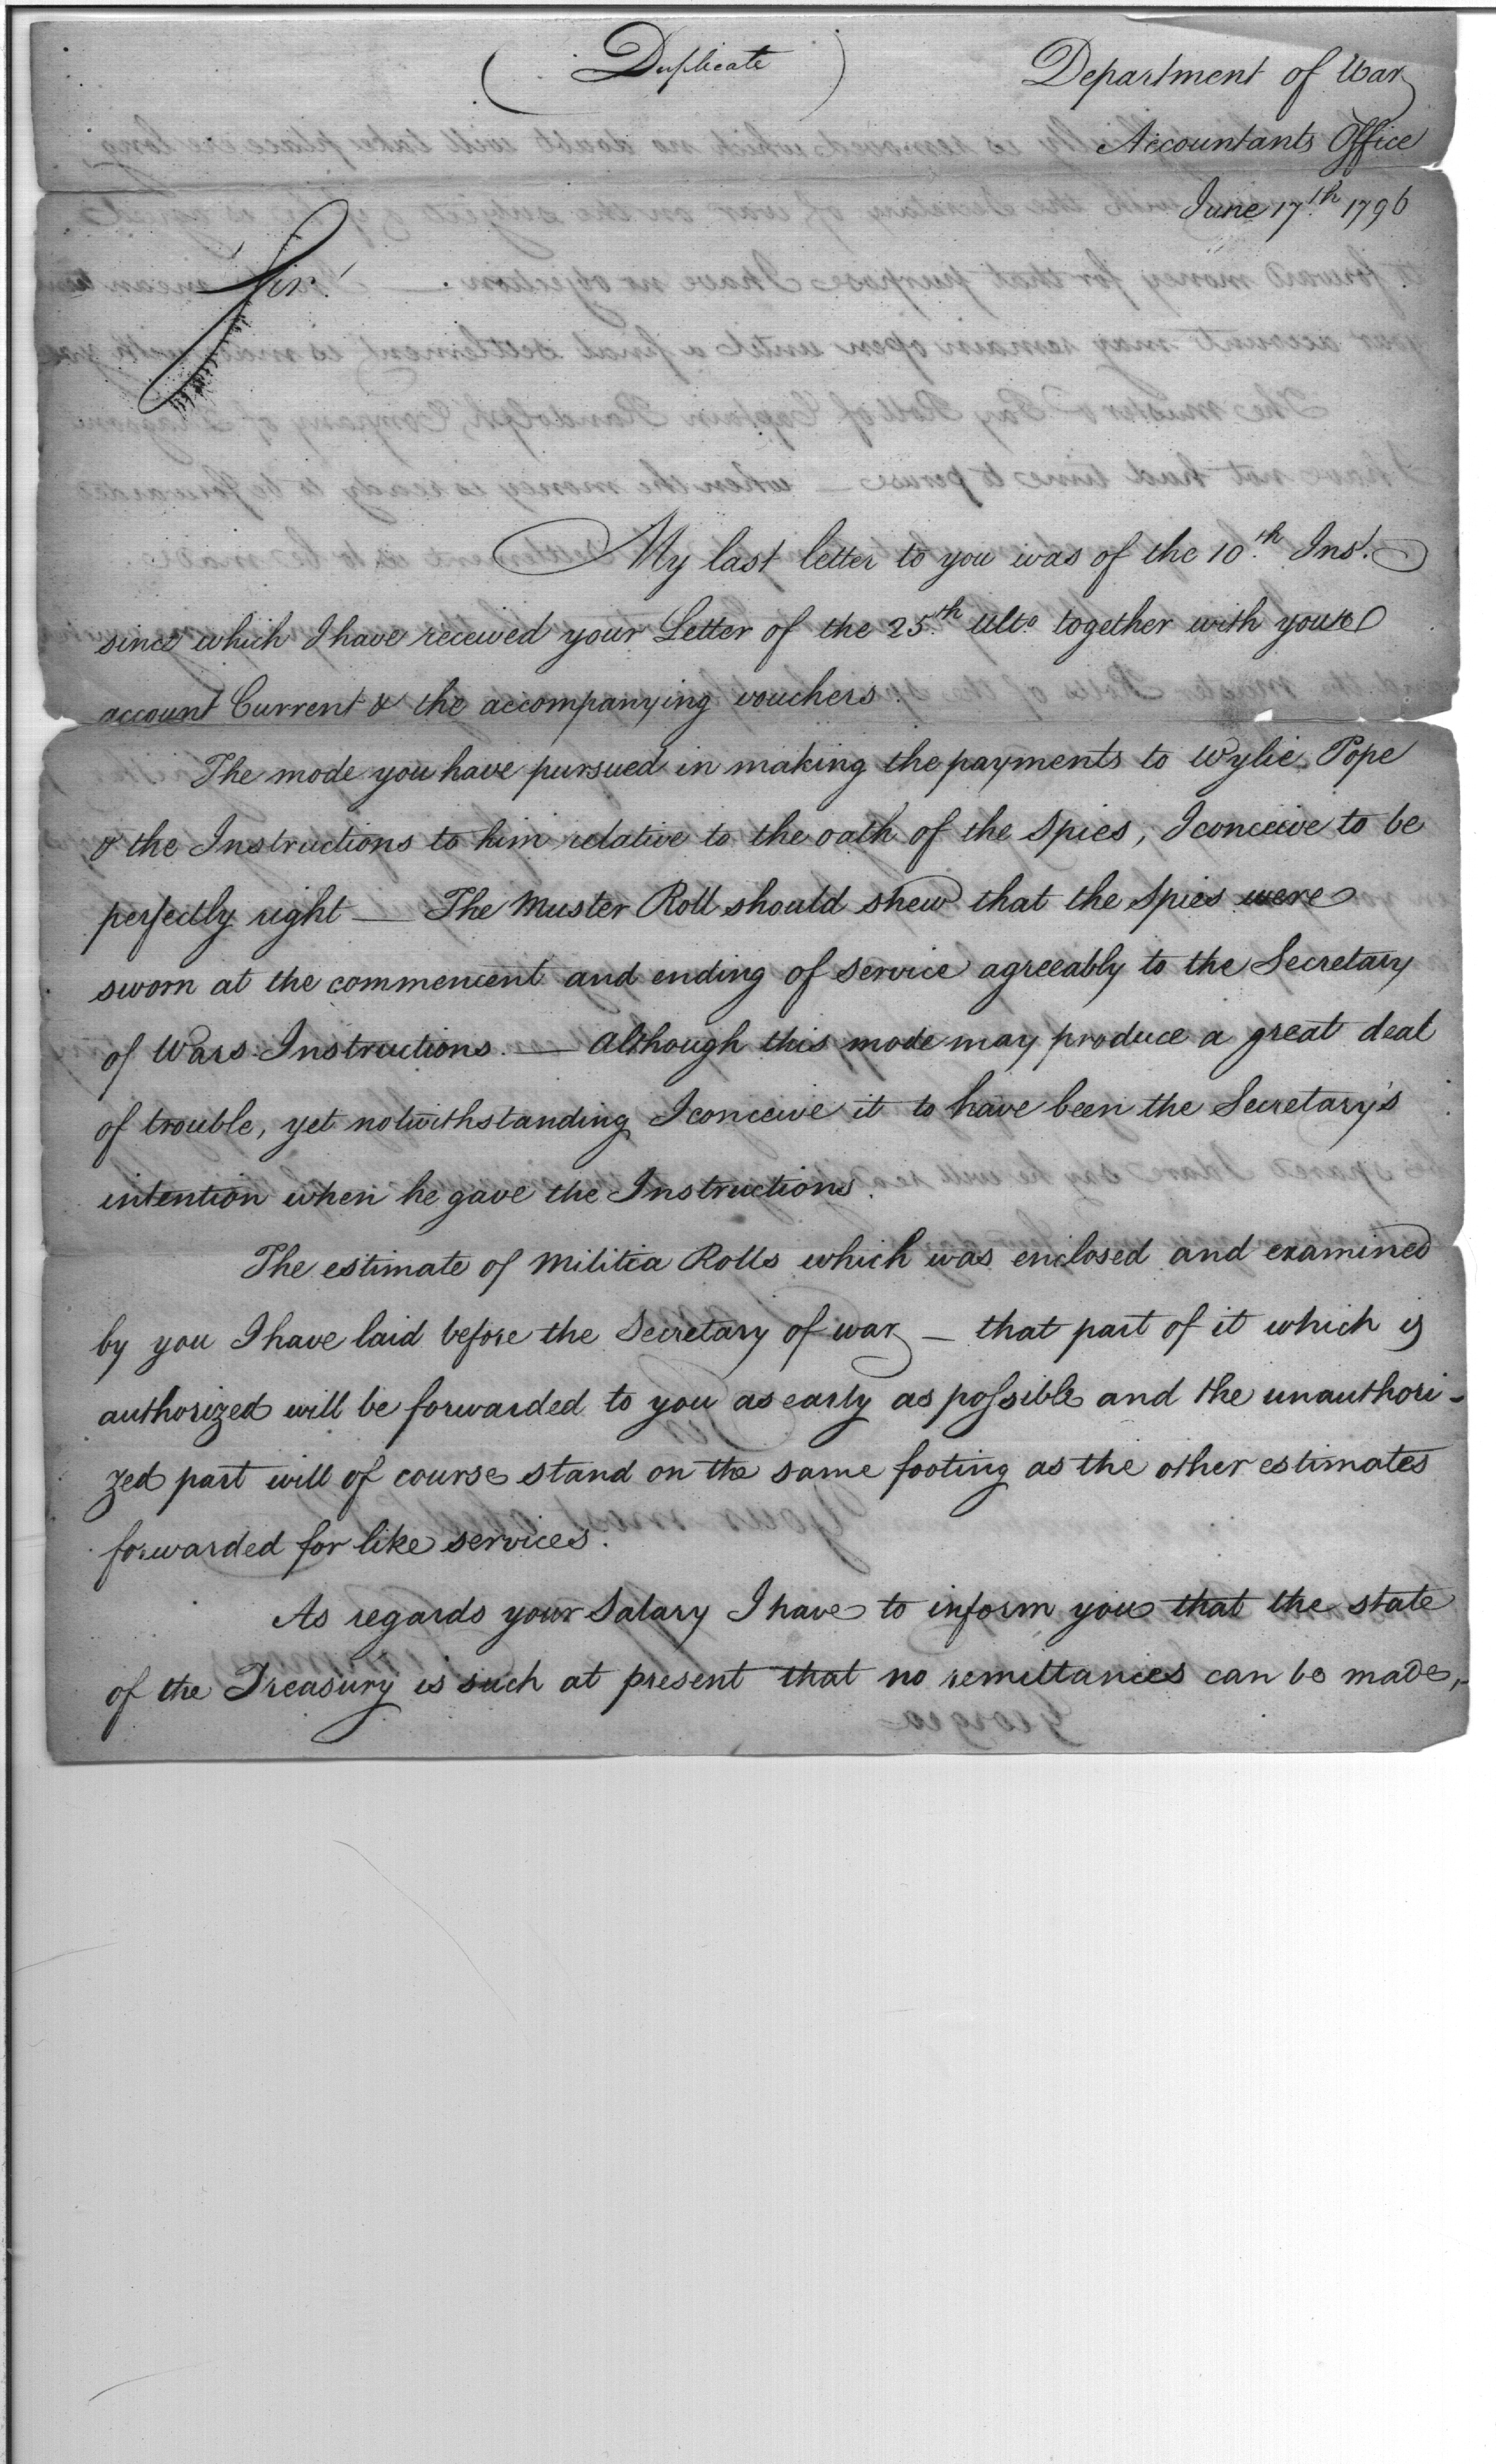 (Duplicate)
Department of War
Accountants Office
June 17th 1796
Sir!
My last letter to you was of the 10th Inst.
since which I have received your Letter of the 25th Ulto together with your
account Current & the accompanying vouchers.
The mode you have pursued in making the payments to Wylie Pope
& the Instructions to him relative to the oath of the Spies, I conceive to be
perfectly right — The Muster Roll should shew that the Spies were
sworn at the commencent and ending of service agreeably to the Secretary
of Wars Instructions. — Although this mode may produce a great deal
of trouble, yet notwithstanding I conceive it to have been the Secretary's
intention when he gave the Instructions.
The estimate of Militia Rolls which was enclosed and examined
by you I have laid before the Secretary of war — that part of it which is
authorized will be forwarded to you as early as possible and the unauthori-
zed part will of course stand on the same footing as the other estimates
forwarded for like services.
As regards your Salary I have to inform you that the state
of the Treasury is such at present that no remittances can be made,